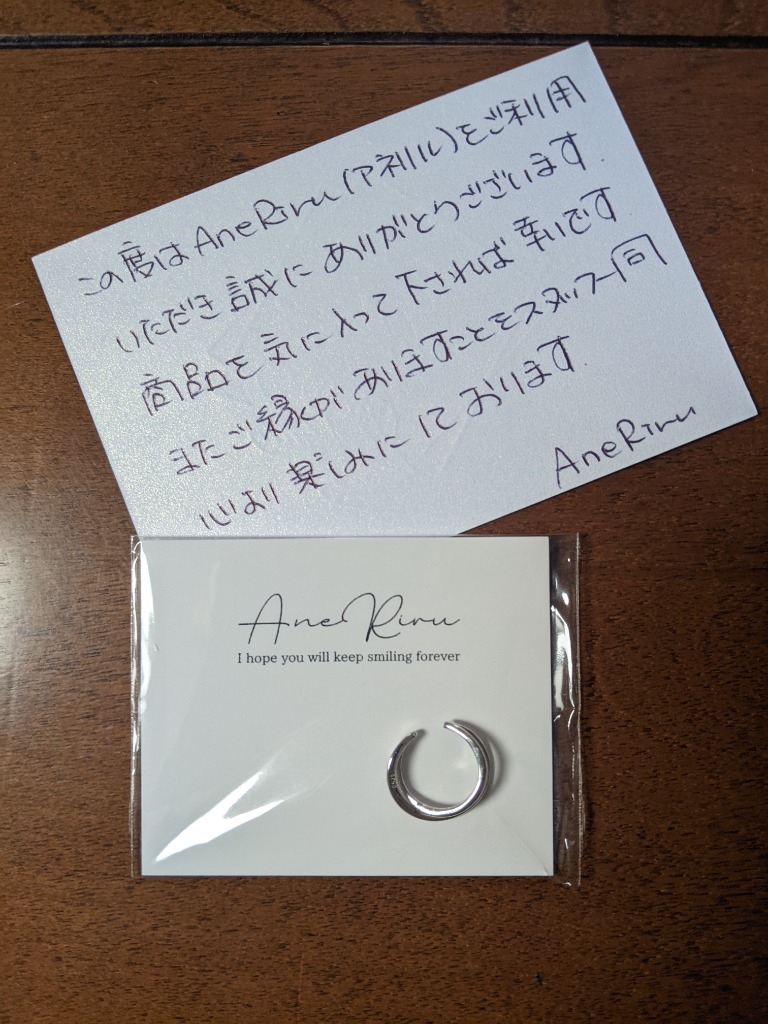 この度はAneRiru(アネリル)をご利用
いただき誠にありがとうございます.
商品を気に入って下されば幸いです
またご縁がありますことをスタッフ一同
心より楽しみにしております.
AneRiru
AneRiru
I hope you will keep smiling forever